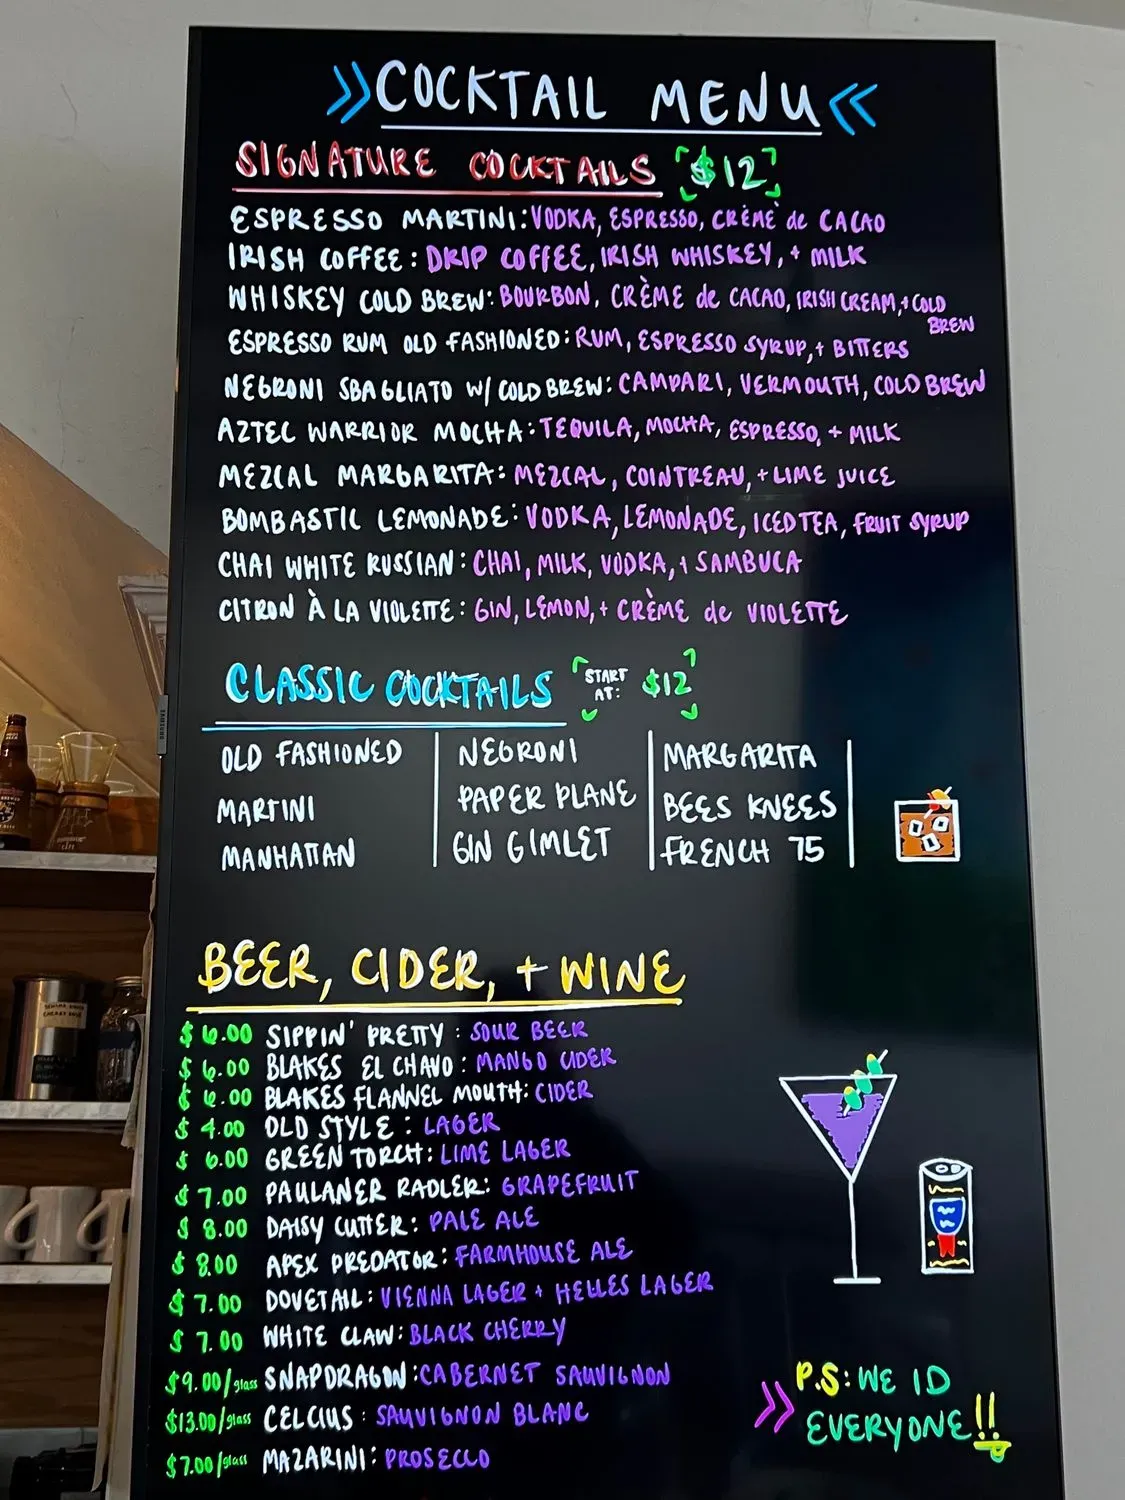 >>COCKTAIL MENU<<
SIGNATURE COCKTAILS $12
ESPRESSO MARTINI: VODKA, ESPRESSO, CRÈME de CACAO
IRISH COFFEE: DRIP COFFEE, IRISH WHISKEY, + MILK
WHISKEY COLD BREW: BOURBON, CRÈME de CACAO, IRISH CREAM, + COLD
BREW
ESPRESSO RUM OLD FASHIONED: RUM, ESPRESSO SYRUP, + BITTERS
NEGRONI SBAGLIATO W/ COLD BREW: CAMPARI, VERMOUTH, COLD BREW
AZTEC WARRIOR MOCHA: TEQUILA, MOCHA, ESPRESSO, + MILK
MEZCAL MARGARITA: MEZCAL, COINTREAU, + LIME JUICE
BOMBASTIC LEMONADE: VODKA, LEMONADE, ICED TEA, FRUIT SYRUP
CHAI WHITE RUSSIAN: CHAI, MILK, VODKA, + SAMBUCA
CITRON À LA VIOLETTE: GIN, LEMON, + CRÈME de VIOLETTE
CLASSIC COCKTAILS START AT: $12
OLD FASHIONED
MARTINI
MANHATTAN
NEGRONI
PAPER PLANE
GIN GIMLET
MARGARITA
BEES KNEES
FRENCH 75
BEER, CIDER, + WINE
$6.00 SIPPIN' PRETTY: SOUR BEER
$6.00 BLAKES EL CHAVO: MANGO CIDER
$6.00 BLAKES FLANNEL MOUTH: CIDER
$4.00 OLD STYLE: LAGER
$6.00 GREEN TORCH: LIME LAGER
$7.00 PAULANER RADLER: GRAPEFRUIT
$8.00 DAISY CUTTER: PALE ALE
$8.00 APEX PREDATOR: FARMHOUSE ALE
$7.00 DOVETAIL: VIENNA LAGER + HELLES LAGER
$7.00 WHITE CLAW: BLACK CHERRY
$9.00/glass SNAPDRAGON: CABERNET SAUVIGNON
$13.00/glass CELCIUS: SAUVIGNON BLANC
$7.00/glass MAZARINI: PROSECCO
>> P.S: WE ID
EVERYONE!!